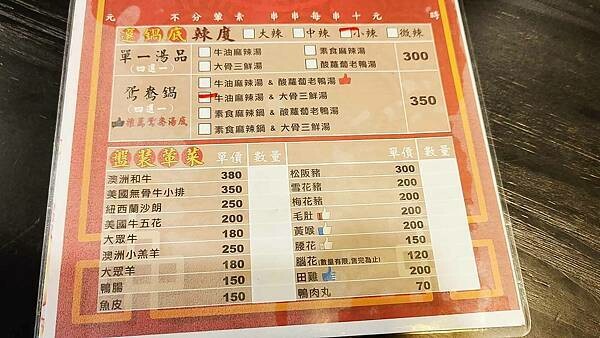 元 不分葷素 串串每串十元 時
鍋底辣度 大辣 中辣 小辣 微辣
單一湯品 牛油麻辣湯 素食麻辣湯 300
(四選一) 大骨三鮮湯 酸蘿蔔老鴨湯
鴛鴦鍋 牛油麻辣湯 & 酸蘿蔔老鴨湯
(四選一) 牛油麻辣湯 & 大骨三鮮湯 350
素食麻辣鍋 & 酸蘿蔔老鴨湯
推薦鴛鴦湯底 素食麻辣鍋 & 大骨三鮮湯
盤裝葷菜 單價 數量 單價 數量
澳洲和牛 380 松阪豬 300
美國無骨牛小排 350 雪花豬 200
紐西蘭沙朗 250 梅花豬 200
美國牛五花 200 毛肚 200
大眾牛 180 黃喉 200
澳洲小羔羊 250 腰花 150
大眾羊 180 腦花(數量有限,售完為止) 120
鴨腸 150 田雞 200
魚皮 150 鴨肉丸 70